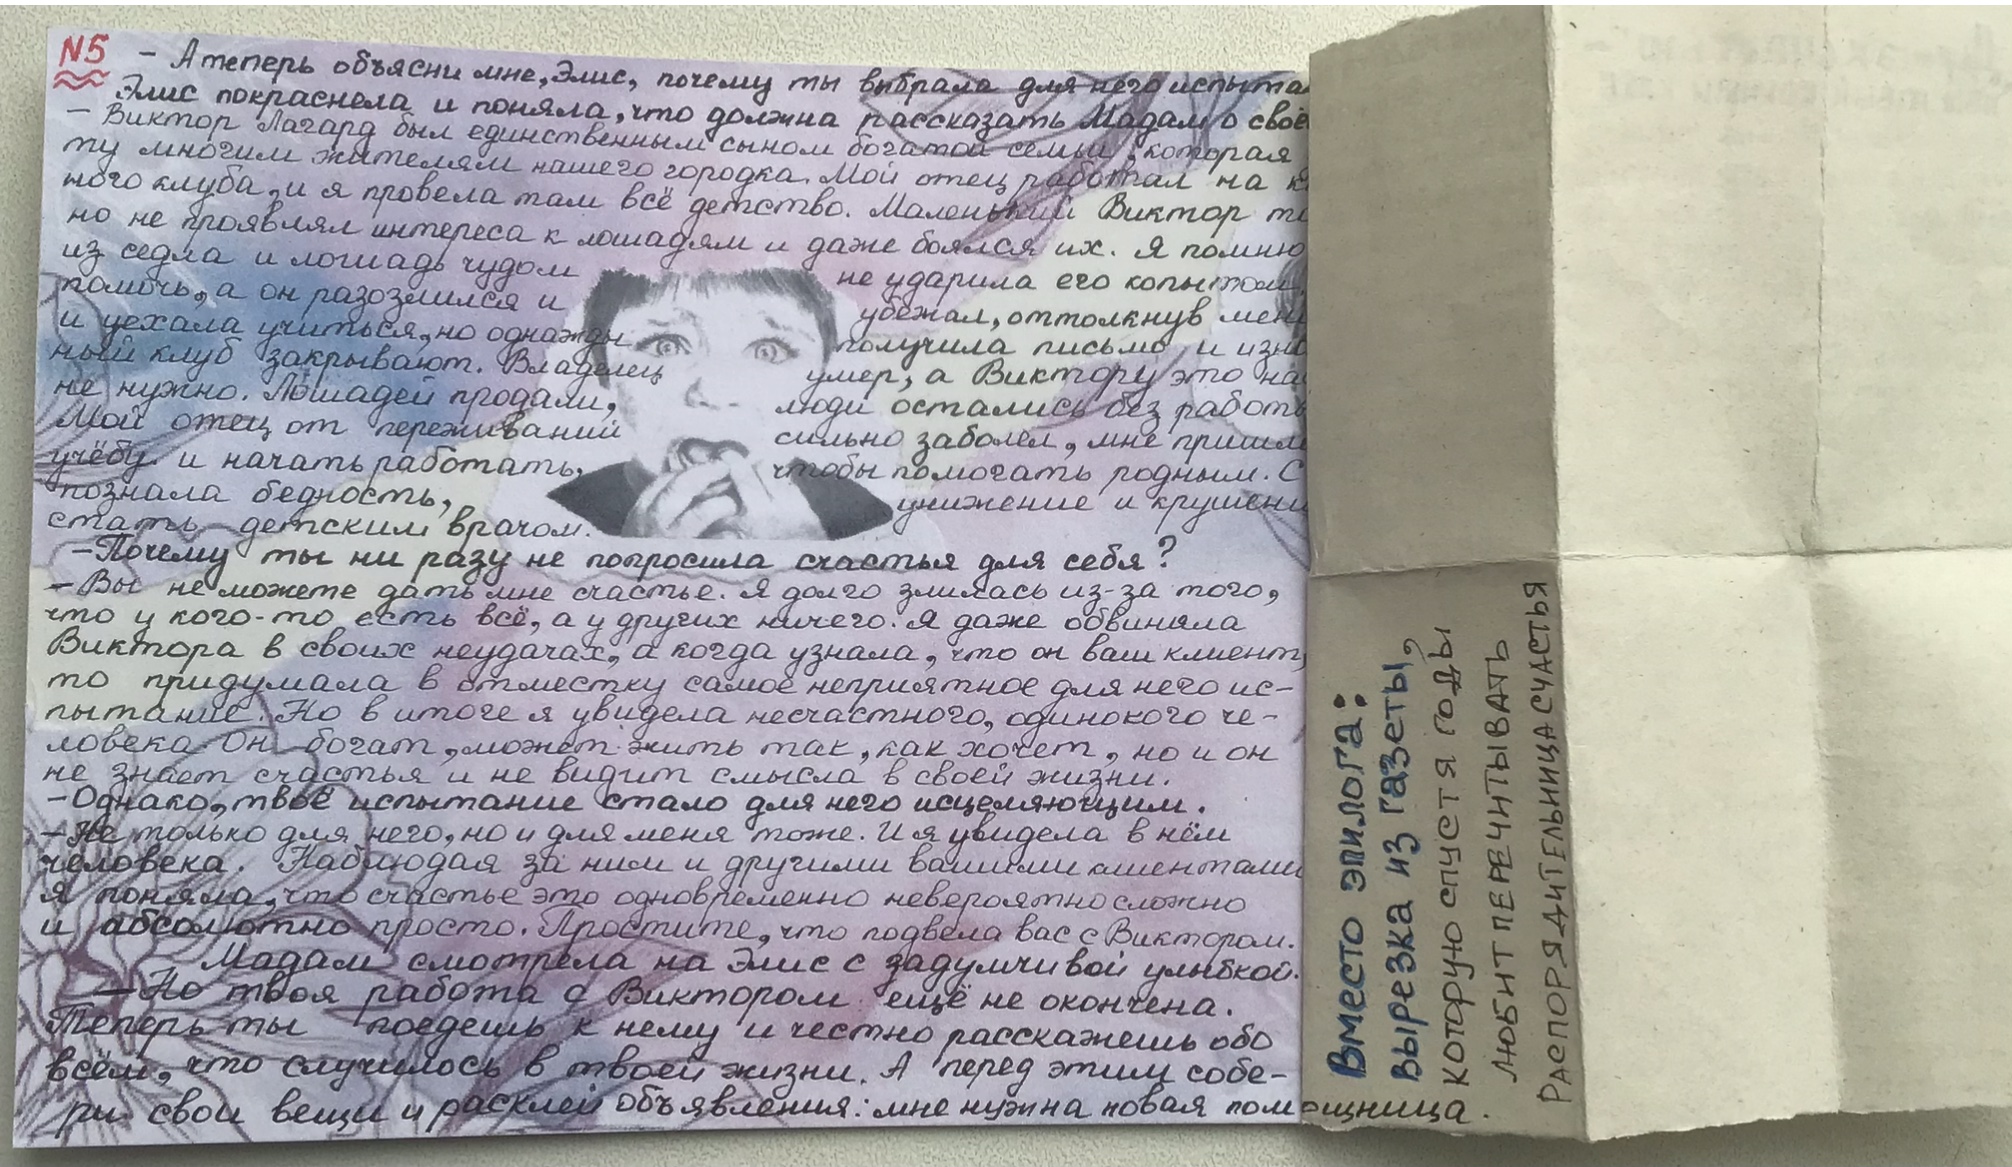 N5
– А теперь объясни мне, Элис, почему ты выбрала для него испыта
Элис покраснела и поняла, что должна рассказать Мадам о своё
– Виктор Лагард был единственным сыном богатой семьи, которая
ту многим жителям нашего городка. Мой отец работал на к
ного клуба, и я провела там всё детство. Маленький Виктор т
но не проявлял интереса к лошадям и даже боялся их. Я помню
из седла и лошадь чудом не ударила его копытом,
помочь, а он разозлился и убежал, оттолкнув мен
и уехала учиться, но однажды получила письмо и узна
ный клуб закрывают. Владелец умер, а Виктору это на
не нужно. Лошадей продали, люди остались без работы
Мой отец от переживаний сильно заболел, мне пришл
учёбу и начать работать, чтобы помогать родным. С
познала бедность, унижение и крушени
стать детским врачом.
– Почему ты ни разу не попросила счастья для себя?
– Вы не можете дать мне счастье. Я долго злилась из-за того,
что у кого-то есть всё, а у других ничего. Я даже обвиняла
Виктора в своих неудачах, а когда узнала, что он ваш клиент,
то придумала в отместку самое неприятное для него ис-
пытание. Но в итоге я увидела несчастного, одинокого че-
ловека. Он богат, может жить так, как хочет, но и он
не знает счастья и не видит смысла в своей жизни.
– Однако, твоё испытание стало для него исцеляющим.
– Не только для него, но и для меня тоже. И я увидела в нём
человека. Наблюдая за ним и другими вашими клиентами
я поняла, что счастье это одновременно невероятно сложно
и абсолютно просто. Простите, что подвела вас с Виктором.
Мадам смотрела на Элис с задумчивой улыбкой.
– Но твоя работа с Виктором ещё не окончена.
Теперь ты поедешь к нему и честно расскажешь обо
всём, что случилось в твоей жизни. А перед этим собе-
ри свои вещи и расклей объявления: мне нужна новая помощница.
Вместо эпилога:
вырезка из газеты,
которую спустя годы
любит перечитывать
Распорядительница счастья